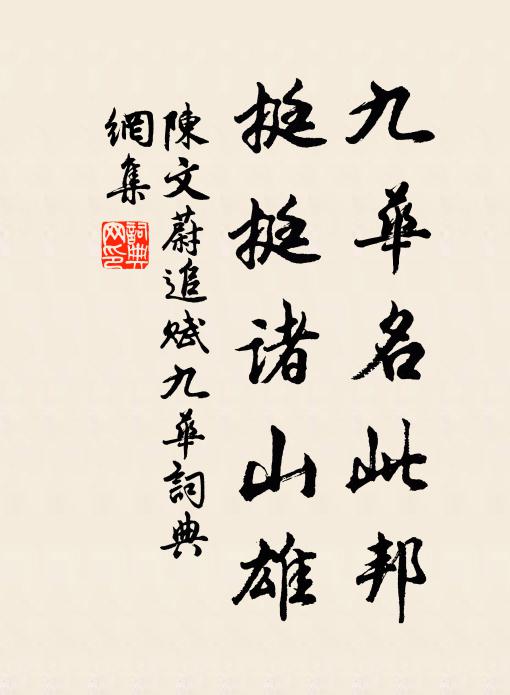 九華名此邦
挺挺諸山雄
陳文蔚追賦九華詞典
網集
詞典网印